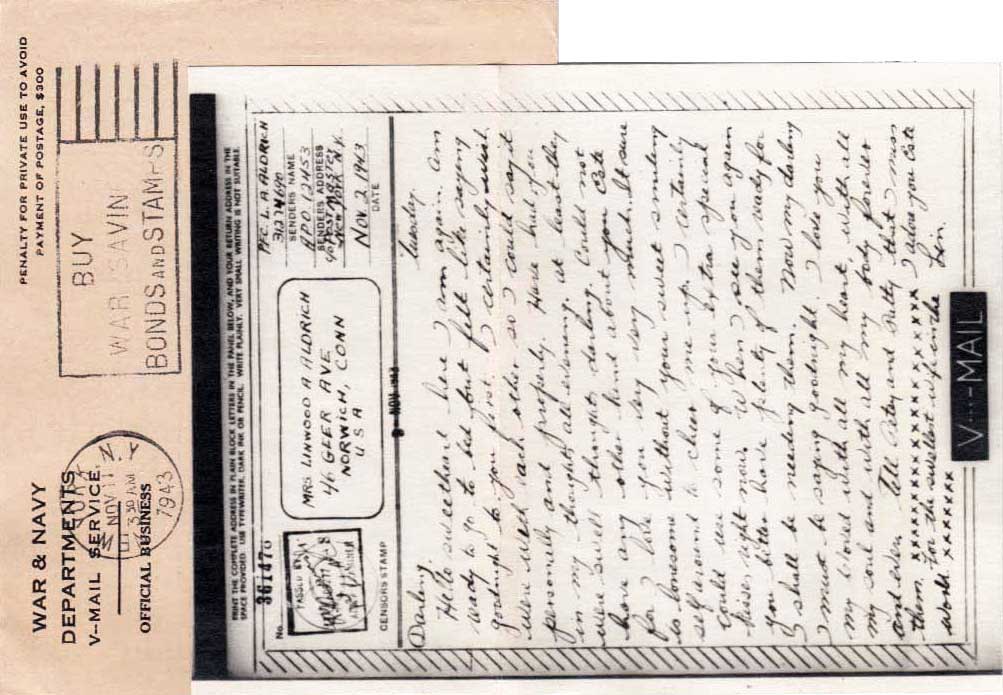 WAR & NAVY
DEPARTMENTS
V-MAIL SERVICE
OFFICIAL BUSINESS
PENALTY FOR PRIVATE USE TO AVOID
PAYMENT OF POSTAGE, $300
N. Y.
NOV 11
3 30 AM
1943
BUY
WAR SAVIN
BONDS AND STAMPS
PRINT THE COMPLETE ADDRESS IN PLAIN BLOCK LETTERS IN THE PANEL BELOW, AND YOUR RETURN ADDRESS IN THE
SPACE PROVIDED. USE TYPEWRITER, DARK INK OR PENCIL. WRITE PLAINLY. VERY SMALL WRITING IS NOT SUITABLE.
No. 361470
PASSED BY
CENSORS STAMP
MRS LINWOOD A ALDRICH
46 GEER AVE
NORWICH, CONN
U S A
PFC. L. A ALDRICH
31274690
SENDERS NAME
APO 12453
SENDERS ADDRESS
℅ POSTMASTER
NEW YORK N.Y.
NOV. 2 1943
DATE
NOV 1943
Tuesday
Darling
Hello sweetheart here I am again. Am
ready to go to bed but felt like saying
goodnight to you first. I certainly wish
were with each other so I could say it
personally and properly. Have had you
in my thoughts all evening, at least they
were sweet thoughts darling. Could not
have any other kind about you Este
for I love you very very much. It sure
is lonesome without your sweet smiling
self around to cheer me up. I certainly
could use some of your extra special
kisses right now. When I see you again
you better have plenty of them ready for
I shall be needing them. Now my darling
I must be saying goodnight. I love you
my beloved with all my heart, with all
my soul and with all my body forever
and ever. Tell Patsy and Sully that I miss
them. xxxxxxxxxxxxxxxx I adore you Este
For the sweetest wife in the
world xxxxxxx Lin
V···—MAIL